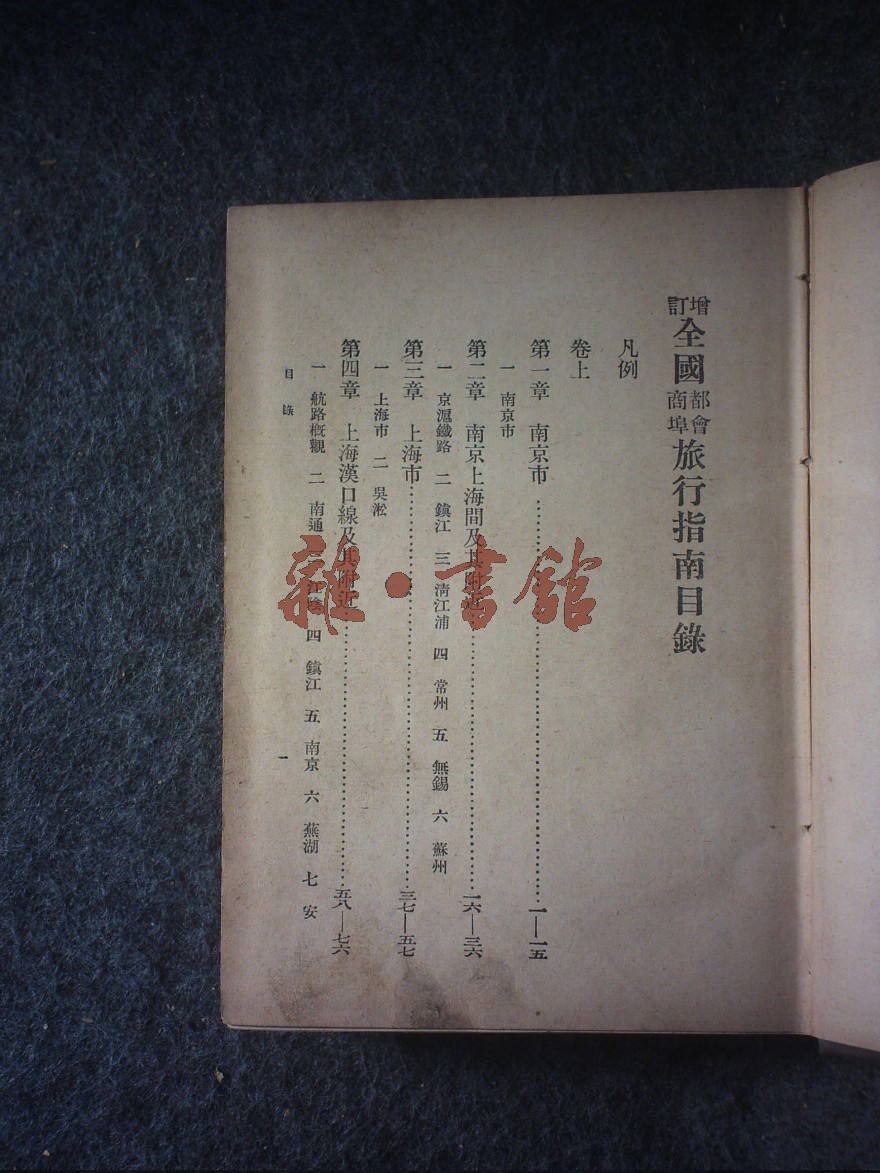 增訂全國都會商埠旅行指南目錄
凡例
卷上
第一章 南京市……一—一五
一 南京市
第二章 南京上海間及其附近……一六—三六
一 京滬鐵路 二 鎮江 三 清江浦 四 常州 五 無錫 六 蘇州
第三章 上海市……三七—五七
一 上海市 二 吳淞
第四章 上海漢口線及其附近……五八—七六
一 航路概觀 二 南通 三 江陰 四 鎮江 五 南京 六 蕪湖 七 安
目錄 一
雜·書館